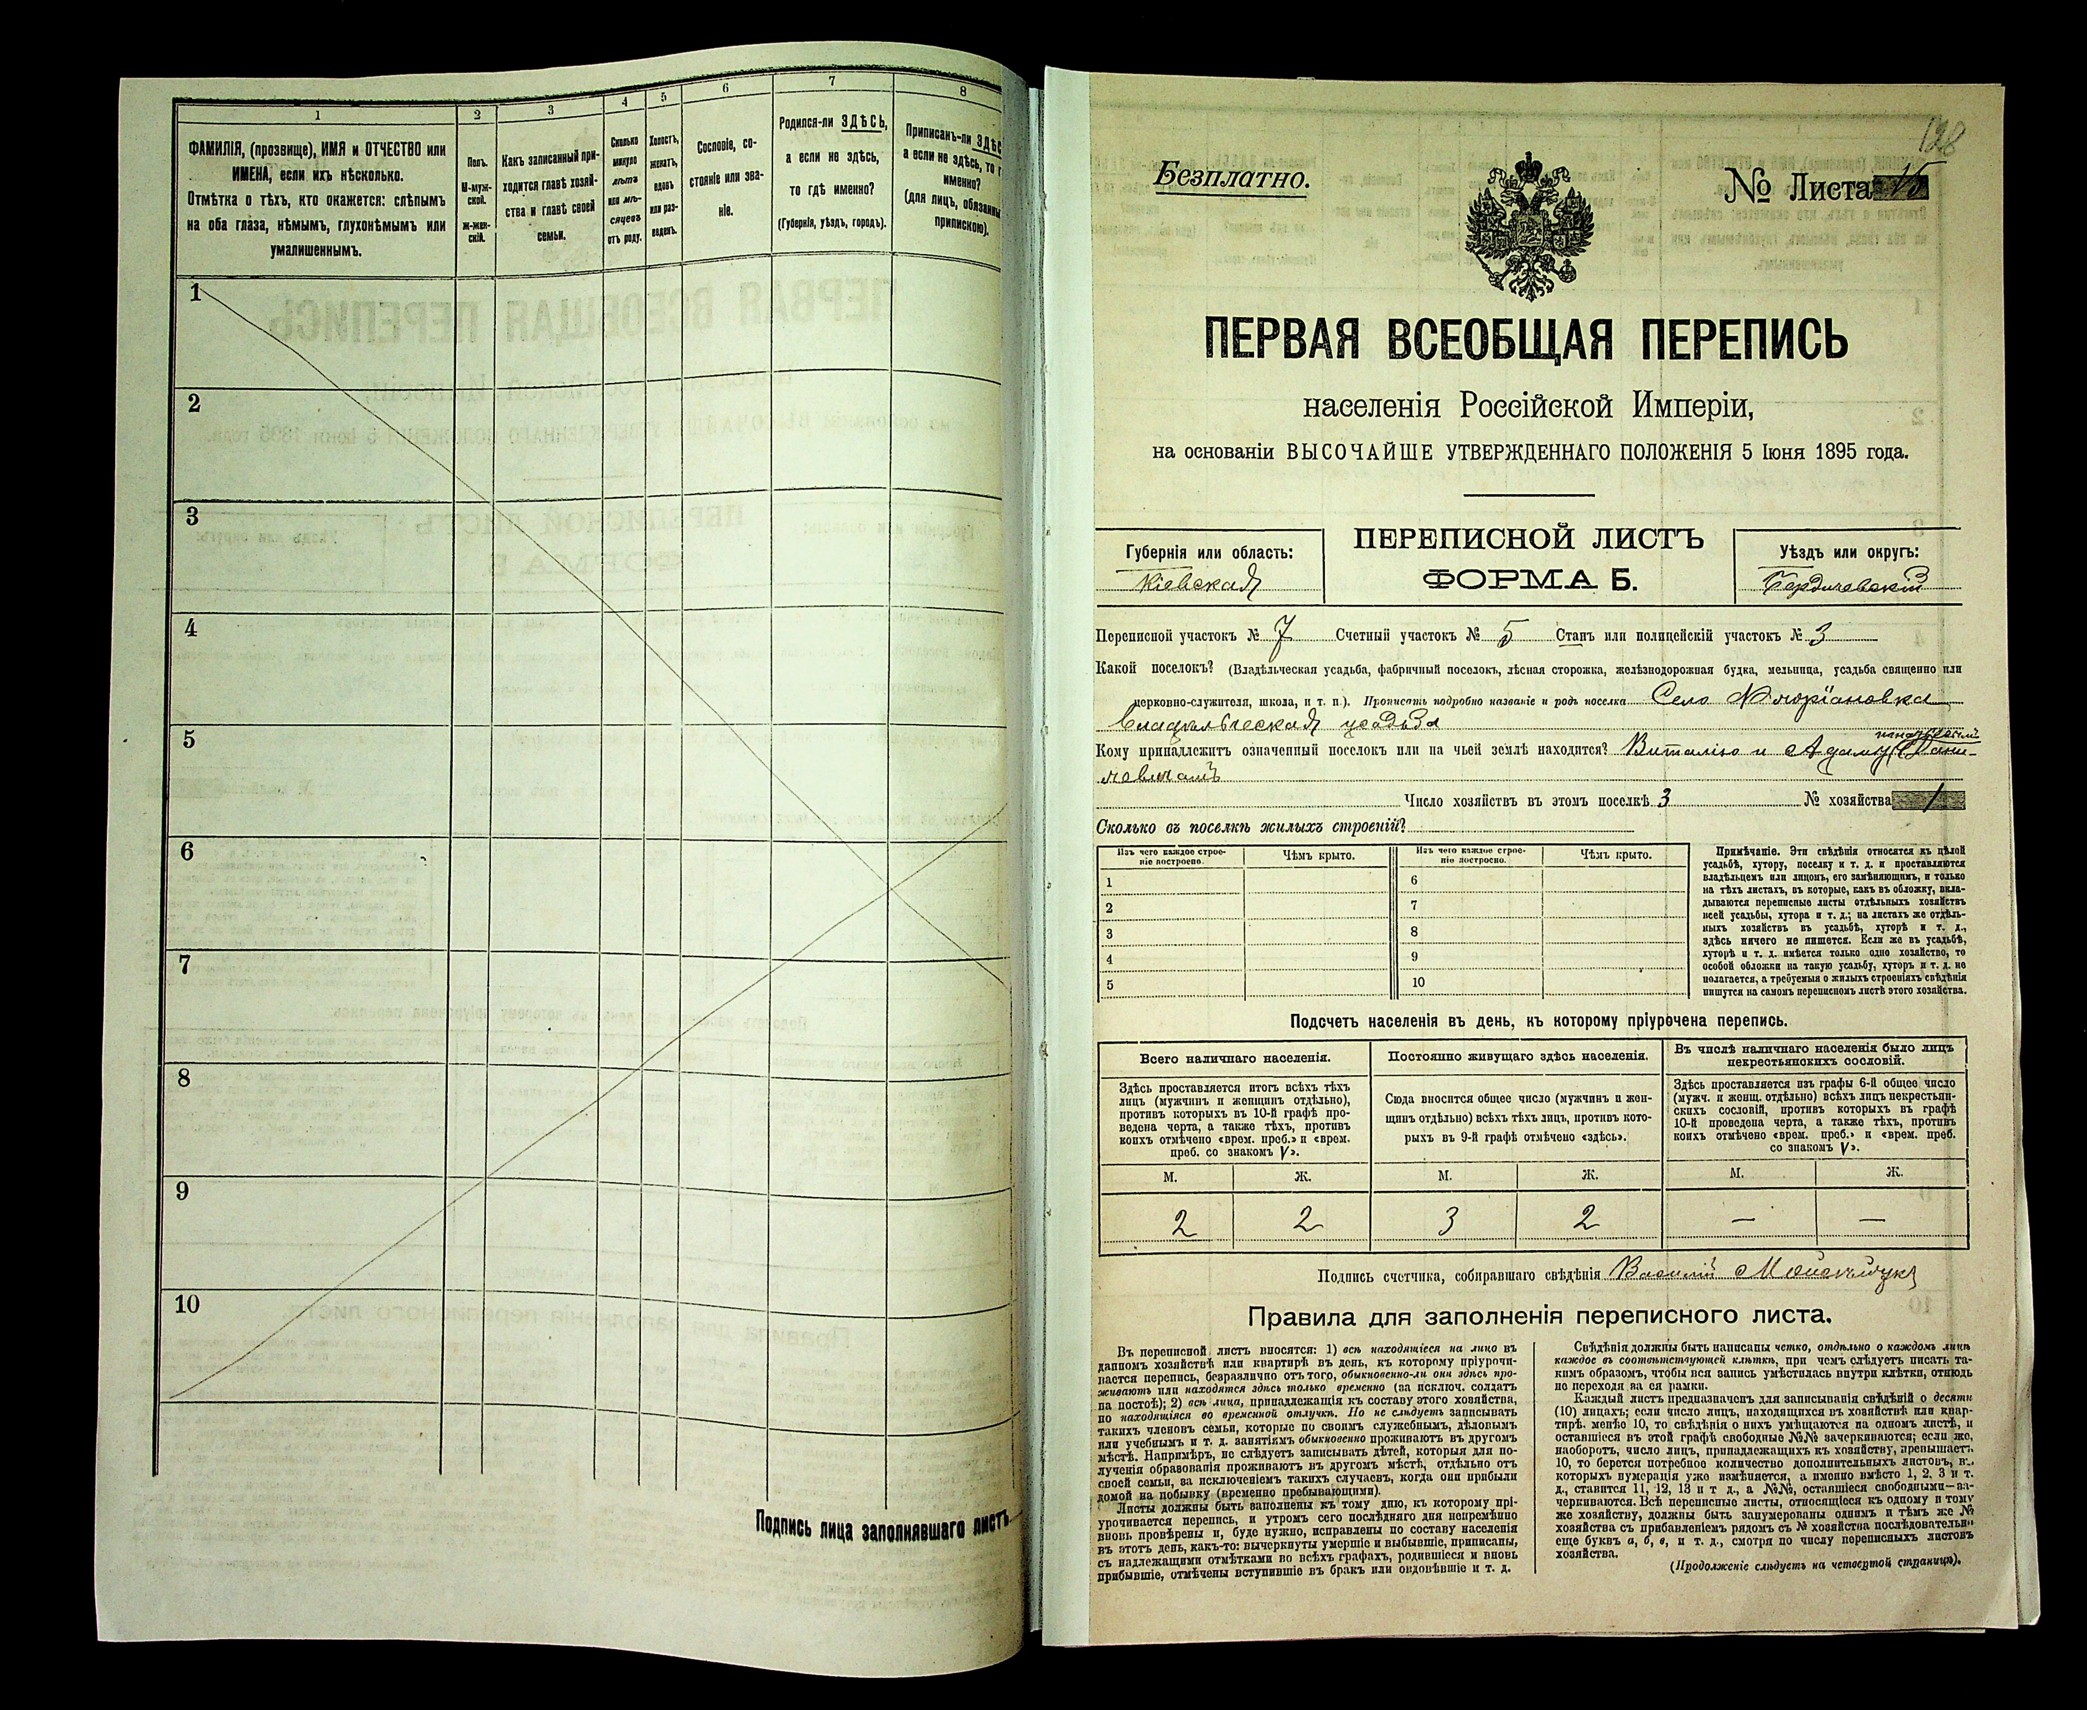 1
2
3
4
5
6
7
8
ФАМИЛІЯ, (прозвище), ИМЯ и ОТЧЕСТВО или
ИМЕНА, если ихъ нѣсколько.
Отмѣтка о тѣхъ, кто окажется: слѣпымъ
на оба глаза, нѣмымъ, глухонѣмымъ или
умалишеннымъ.
Полъ.
М-муж-
ской.
ж-жен-
скій.
Какъ записанный при-
ходится главѣ хозяй-
ства и главѣ своей
семьи.
Сколько
минуло
лѣтъ
или мѣ-
сяцевъ
отъ роду.
Холостъ,
женатъ,
вдовъ
или раз-
веденъ.
Сословіе, со-
стояніе или зва-
ніе.
Родился-ли ЗДѢСЬ,
а если не здѣсь,
то гдѣ именно?
(Губернія, уѣздъ, городъ).
Приписанъ-ли ЗДѢС
а если не здѣсь, то г
именно?
(для лицъ, обязанны
припискою).
1
2
3
4
5
6
7
8
9
10
Подпись лица заполнявшаго листъ
128
Безплатно.
№ Листа 15
ПЕРВАЯ ВСЕОБЩАЯ ПЕРЕПИСЬ
населенія Россійской Имперіи,
на основаніи ВЫСОЧАЙШЕ УТВЕРЖДЕННАГО ПОЛОЖЕНІЯ 5 Іюня 1895 года.
Губернія или область:
Кіевская
ПЕРЕПИСНОЙ ЛИСТЪ
ФОРМА Б.
Уѣздъ или округъ:
Бердичевскій
Переписной участокъ № 7 Счетный участокъ № 5 Станъ или полицейскій участокъ № 3
Какой поселокъ? (Владѣльческая усадьба, фабричный поселокъ, лѣсная сторожка, желѣзнодорожная будка, мельница, усадьба священно или
церковно-служителя, школа, и т. п.). Прописать подробно названіе и родъ поселка Село
Владѣльческая усадьба
Кому принадлежитъ означенный поселокъ или на чьей землѣ находится? Виталію и Адаму
Число хозяйствъ въ этомъ поселкѣ 3 № хозяйства 1
Сколько въ поселкѣ жилыхъ строеній?
Изъ чего каждое строе-
ніе построено.
Чѣмъ крыто.
Изъ чего каждое строе-
ніе построено.
Чѣмъ крыто.
1
2
3
4
5
6
7
8
9
10
Примѣчаніе. Эти свѣдѣнія относятся къ цѣлой
усадьбѣ, хутору, поселку и т. д. и проставляются
владѣльцемъ или лицомъ, его замѣняющимъ, и только
на тѣхъ листахъ, въ которые, какъ въ обложку, вкла-
дываются переписные листы отдѣльныхъ хозяйствъ
всей усадьбы, хутора и т. д.; на листахъ же отдѣль-
ныхъ хозяйствъ въ усадьбѣ, хуторѣ и т. д.,
здѣсь ничего не пишется. Если же въ усадьбѣ,
хуторѣ и т. д. имѣется только одно хозяйство, то
особой обложки на такую усадьбу, хуторъ и т. д. не
полагается, а требуемыя о жилыхъ строеніяхъ свѣдѣнія
пишутся на самомъ переписномъ листѣ этого хозяйства.
Подсчетъ населенія въ день, къ которому пріурочена перепись.
Всего наличнаго населенія.
Здѣсь проставляется итогъ всѣхъ тѣхъ
лицъ (мужчинъ и женщинъ отдѣльно),
противъ которыхъ въ 10-й графѣ про-
ведена черта, а также тѣхъ, противъ
коихъ отмѣчено «врем. преб.» и «врем.
преб. со знакомъ V».
Постоянно живущаго здѣсь населенія.
Сюда вносится общее число (мужчинъ и жен-
щинъ отдѣльно) всѣхъ тѣхъ лицъ, противъ кото-
рыхъ въ 9-й графѣ отмѣчено «здѣсь».
Въ числѣ наличнаго населенія было лицъ
некрестьянскихъ сословій.
Здѣсь проставляется изъ графы 6-й общее число
(мужч. и женщ. отдѣльно) всѣхъ лицъ некрестьян-
скихъ сословій, противъ которыхъ въ графѣ
10-й проведена черта, а также тѣхъ, противъ
коихъ отмѣчено «врем. преб.» и «врем. преб.
со знакомъ V».
М. Ж. М. Ж. М. Ж.
2 2 3 2 — —
Подпись счетчика, собиравшаго свѣдѣнія Василій
Правила для заполненія переписного листа.
Въ переписной листъ вносятся: 1) всѣ находящіеся на лицо въ
данномъ хозяйствѣ или квартирѣ въ день, къ которому пріурочи-
вается перепись, безразлично отъ того, обыкновенно-ли они здѣсь про-
живаютъ или находятся здѣсь только временно (за исключ. солдатъ
на постоѣ); 2) всѣ лица, принадлежащія къ составу этого хозяйства,
но находящіяся во временной отлучкѣ. Но не слѣдуетъ записывать
такихъ членовъ семьи, которые по своимъ служебнымъ, дѣловымъ
или учебнымъ и т. д. занятіямъ обыкновенно проживаютъ въ другомъ
мѣстѣ. Напримѣръ, не слѣдуетъ записывать дѣтей, которыя для по-
лученія образованія проживаютъ въ другомъ мѣстѣ, отдѣльно отъ
своей семьи, за исключеніемъ такихъ случаевъ, когда они прибыли
домой на побывку (временно пребывающими).
Листы должны быть заполнены къ тому дню, къ которому прі-
урочивается перепись, и утромъ сего послѣдняго дня непремѣнно
вновь провѣрены и, буде нужно, исправлены по составу населенія
въ этотъ день, какъ-то: вычеркнуты умершіе и выбывшіе, приписаны,
съ надлежащими отмѣтками во всѣхъ графахъ, родившіеся и вновь
прибывшіе, отмѣчены вступившіе въ бракъ или овдовѣвшіе и т. д.
Свѣдѣнія должны быть написаны четко, отдѣльно о каждомъ лицѣ
каждое въ соотвѣтствующей клѣткѣ, при чемъ слѣдуетъ писать та-
кимъ образомъ, чтобы вся запись умѣстилась внутри клѣтки, отнюдь
не переходя за ея рамки.
Каждый листъ предназначенъ для записыванія свѣдѣній о десяти
(10) лицахъ; если число лицъ, находящихся въ хозяйствѣ или квар-
тирѣ, менѣе 10, то свѣдѣнія о нихъ умѣщаются на одномъ листѣ, и
оставшіеся въ этой графѣ свободные №№ зачеркиваются; если же,
наоборотъ, число лицъ, принадлежащихъ къ хозяйству, превышаетъ
10, то берется потребное количество дополнительныхъ листовъ, въ
которыхъ нумерація уже измѣняется, а именно вмѣсто 1, 2, 3 и т.
д., ставится 11, 12, 13 и т д., а №№, оставшіеся свободными—за-
черкиваются. Всѣ переписные листы, относящіеся къ одному и тому
же хозяйству, должны быть занумерованы однимъ и тѣмъ же №
хозяйства съ прибавленіемъ рядомъ съ № хозяйства послѣдовательно
еще буквъ а, б, в, и т. д., смотря по числу переписныхъ листовъ
хозяйства.
(Продолженіе слѣдуетъ на четвертой страницѣ).